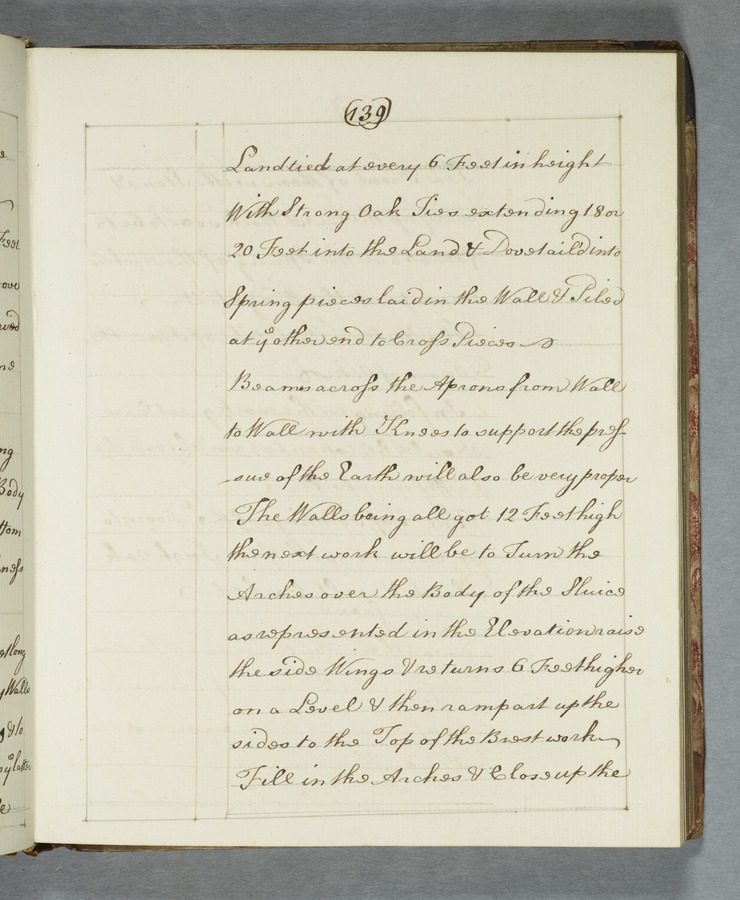 139
Land tied at every 6 Feet in height
With Strong Oak Ties extending 18 or
20 Feet into the Land & Dovetaild into
Spring pieces laid in the Wall & Piled
at yᵉ other end to Cross Pieces
Beams across the Aprons from Wall
to Wall with Knees to support the pres-
sure of the Earth will also be very proper
The Walls being all got 12 Feet high
the next work will be to Turn the
Arches over the Body of the Sluice
as represented in the Elevation raise
the side Wings & returns 6 Feet higher
on a Level & then rampart up the
sides to the Top of the Brest work
Fill in the Arches & Close up the